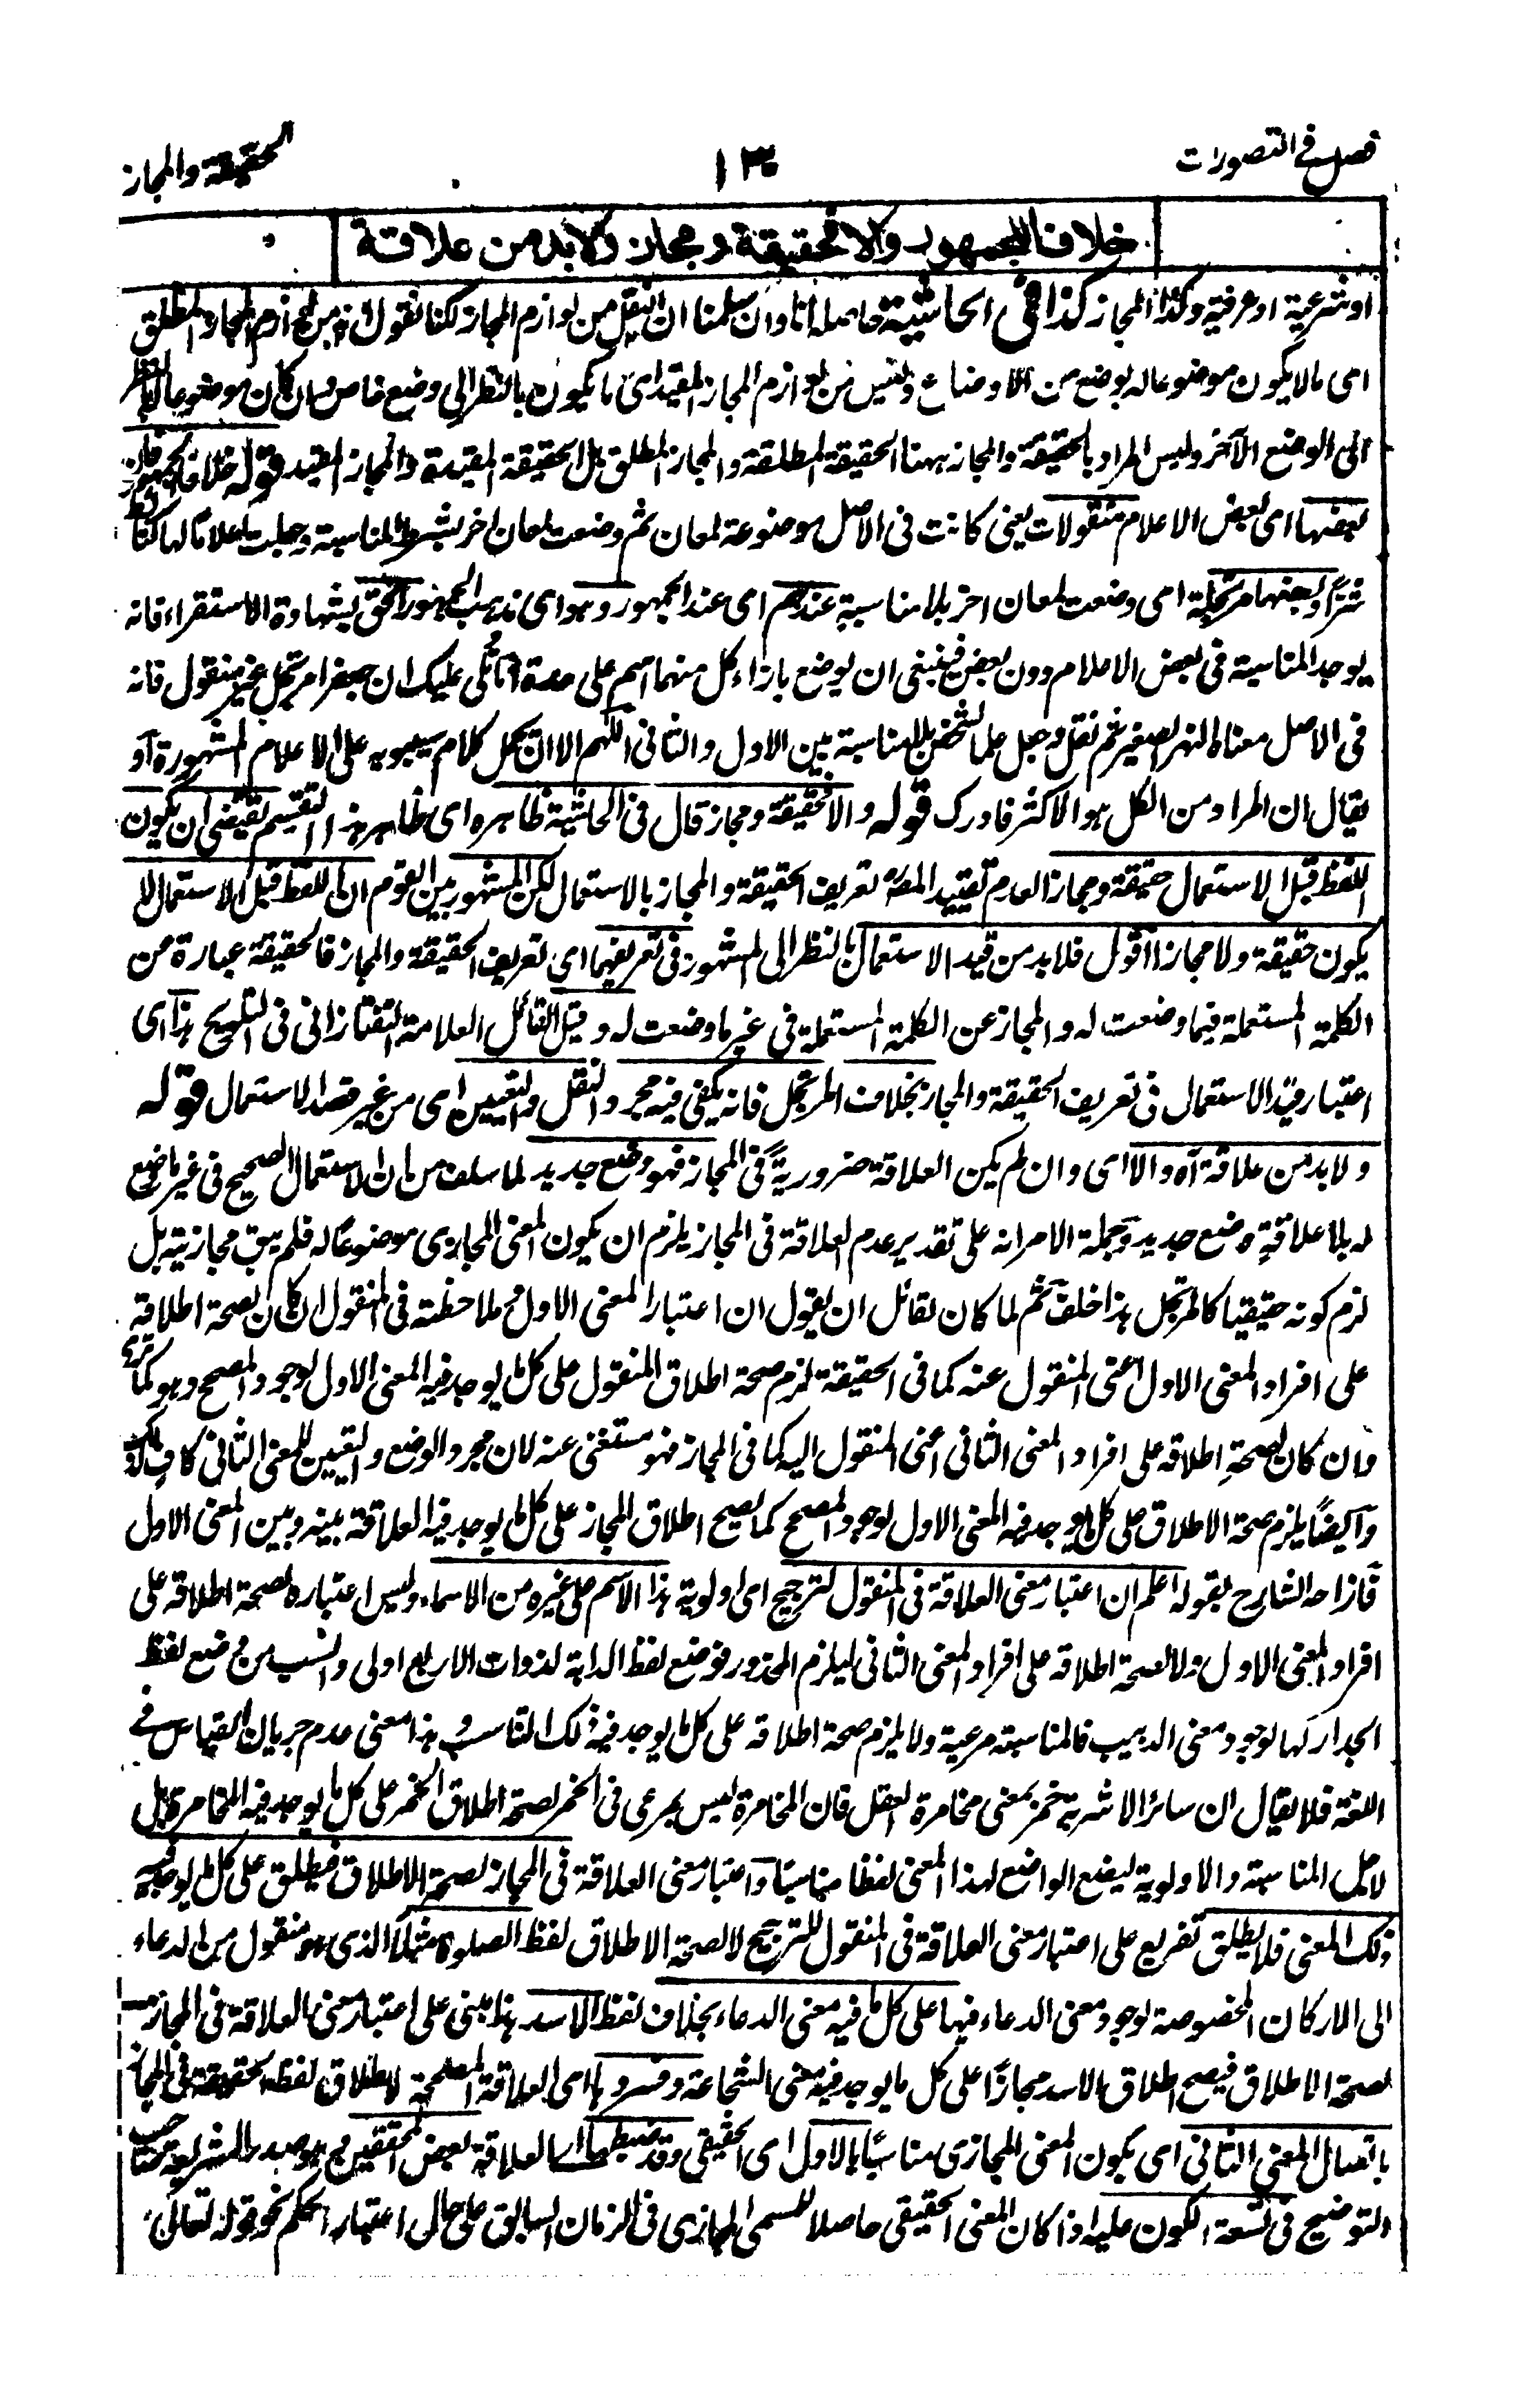 فصل فى التصورات
١٣
الحقيقة والمجاز
خلافا للجمهور والا فحقيقة ومجاز ولابد من علاقة
او شرعية او عرفية وكذا المجاز كذا فى الحاشية حاصله انا وان سلمنا ان النقل من لوازم المجاز لكنا نقول انه من لوازم المجاز المطلق
اى ما لا يكون موضوعا له بوضع من الاوضاع وليس من لوازم المجاز المقيد اى ما يكون بالنظر الى وضع خاص وان كان موضوعا له بالنظر
الى الوضع الآخر وليس المراد بالحقيقة والمجاز ههنا الحقيقة المطلقة والمجاز المطلق بل الحقيقة المقيدة والمجاز المقيد قوله خلافا للجمهور فان
بعضها اى بعض الاعلام منقولات يعنى كانت فى الاصل موضوعة لمعان ثم وضعت لمعان اخر بشرط المناسبة وجعلت اعلاما لها
وبعضها مرتجلة اى وضعت لمعان اخر بلا مناسبة عندهم اى عند الجمهور وهو اى مذهب الجمهور الحق بشهادة الاستقراء فانه
يوجد المناسبة فى بعض الاعلام دون بعض فينبغى ان يوضع بازاء كل منهما اسم على حدة لا يخفى عليك ان جعفرا مرتجل غير منقول فانه
فى الاصل معناه النهر الصغير ثم نقل وجعل علما لشخص بلا مناسبة بين الاول والثانى اللهم الا ان يحمل كلام سيبويه على الاعلام المشهورة او
يقال ان المراد من الكل هو الاكثر فادرك قوله والا فحقيقة ومجاز قال فى الحاشية ظاهره اى ظاهر هذا التقسيم يقتضى ان يكون
اللفظ قبل الاستعمال حقيقة ومجازا لعدم تقييد المصنف تعريف الحقيقة والمجاز بالاستعمال لكن المشهور بين القوم ان اللفظ قبل الاستعمال لا
يكون حقيقة ولا مجازا اقول فلابد من قيد الاستعمال بالنظر الى المشهور فى تعريفهما اى تعريف الحقيقة والمجاز فالحقيقة عبارة عن
الكلمة المستعملة فيما وضعت له والمجاز عن الكلمة المستعملة فى غير ما وضعت له وقيل القائل العلامة التفتازانى فى التلويح هذا اى
اعتبار قيد الاستعمال فى تعريف الحقيقة والمجاز بخلاف المرتجل فانه يكفى فيه مجرد النقل والتعيين اى من غير قصد الاستعمال قوله
ولابد من علاقة آه والا اى وان لم يكن العلاقة ضرورية فى المجاز فهو وضع جديد لما سلف من ان الاستعمال الصحيح فى غير ما وضع
له بلا علاقة وضع جديد وجملة الامر انه على تقدير عدم العلاقة فى المجاز يلزم ان يكون المعنى المجازى موضوعا له فلم يبق مجازيته بل
لزم كونه حقيقيا كالمرتجل هذا خلف ثم لما كان لقائل ان يقول ان اعتبار المعنى الاول وملاحظته فى المنقول ان كان لصحة اطلاقه
على افراد المعنى الاول اعنى المنقول عنه كما فى الحقيقة لزم صحة اطلاق المنقول على كل ما يوجد فيه المعنى الاول لوجود المصحح وهو كما ترى
وان كان لصحة اطلاقه على افراد المعنى الثانى اعنى المنقول اليه كما فى المجاز فهو مستغنى عنه لان مجرد الوضع والتعيين للمعنى الثانى كاف لذلك
وايضا يلزم صحة الاطلاق على كل ما يوجد فيه المعنى الاول لوجود المصحح كما يصح اطلاق المجاز على كل ما يوجد فيه العلاقة بينه وبين المعنى الاول
فازاحه الشارح بقوله اعلم ان اعتبار معنى العلاقة فى المنقول لترجيح اى اولوية هذا الاسم على غيره من الاسماء وليس اعتباره لصحة اطلاقه على
افراد المعنى الاول ولا لصحة اطلاقه على افراد المعنى الثانى ليلزم المحذور فوضع لفظ الدابة لذوات الاربع اولى وانسب من وضع لفظ
الجدار لها لوجود معنى الدبيب فالمناسبة مرعية ولا يلزم صحة اطلاقه على كل ما يوجد فيه ذلك التناسب وهذا معنى عدم جريان القياس فى
اللغة فلا يقال ان سائر الاشربة خمر بمعنى مخامرة العقل فان المخامرة ليس يرعى فى الخمر لصحة اطلاق الخمر على كل ما يوجد فيه المخامرة بل
لاجل المناسبة والاولوية ليضع الواضع لهذا المعنى لفظا مناسبا واعتبار معنى العلاقة فى المجاز لصحة الاطلاق فيطلق على كل ما يوجد فيه
ذلك المعنى فلا يطلق تفريع على اعتبار معنى العلاقة فى المنقول للترجيح لا لصحة الاطلاق لفظ الصلوة مثلا الذى هو منقول من الدعاء
الى الاركان المخصوصة لوجود معنى الدعاء فيها على كل ما فيه معنى الدعاء بخلاف لفظ الاسد هذا مبنى على اعتبار معنى العلاقة فى المجاز
لصحة الاطلاق فيصح اطلاق الاسد مجازا على كل ما يوجد فيه معنى الشجاعة وفسروها اى العلاقة المصححة لاطلاق لفظ الحقيقة فى المجاز
باتصال المعنى الثانى اى يكون المعنى المجازى مناسبا بالاول اى الحقيقى وقد ضبطها اى العلاقة بعض المحققين وهو صدر الشريعة صاحب
التوضيح فى تسعة الكون عليه اذا كان المعنى الحقيقى حاصلا للمسمى المجازى فى الزمان السابق على حال اعتبار الحكم نحو قوله تعالى